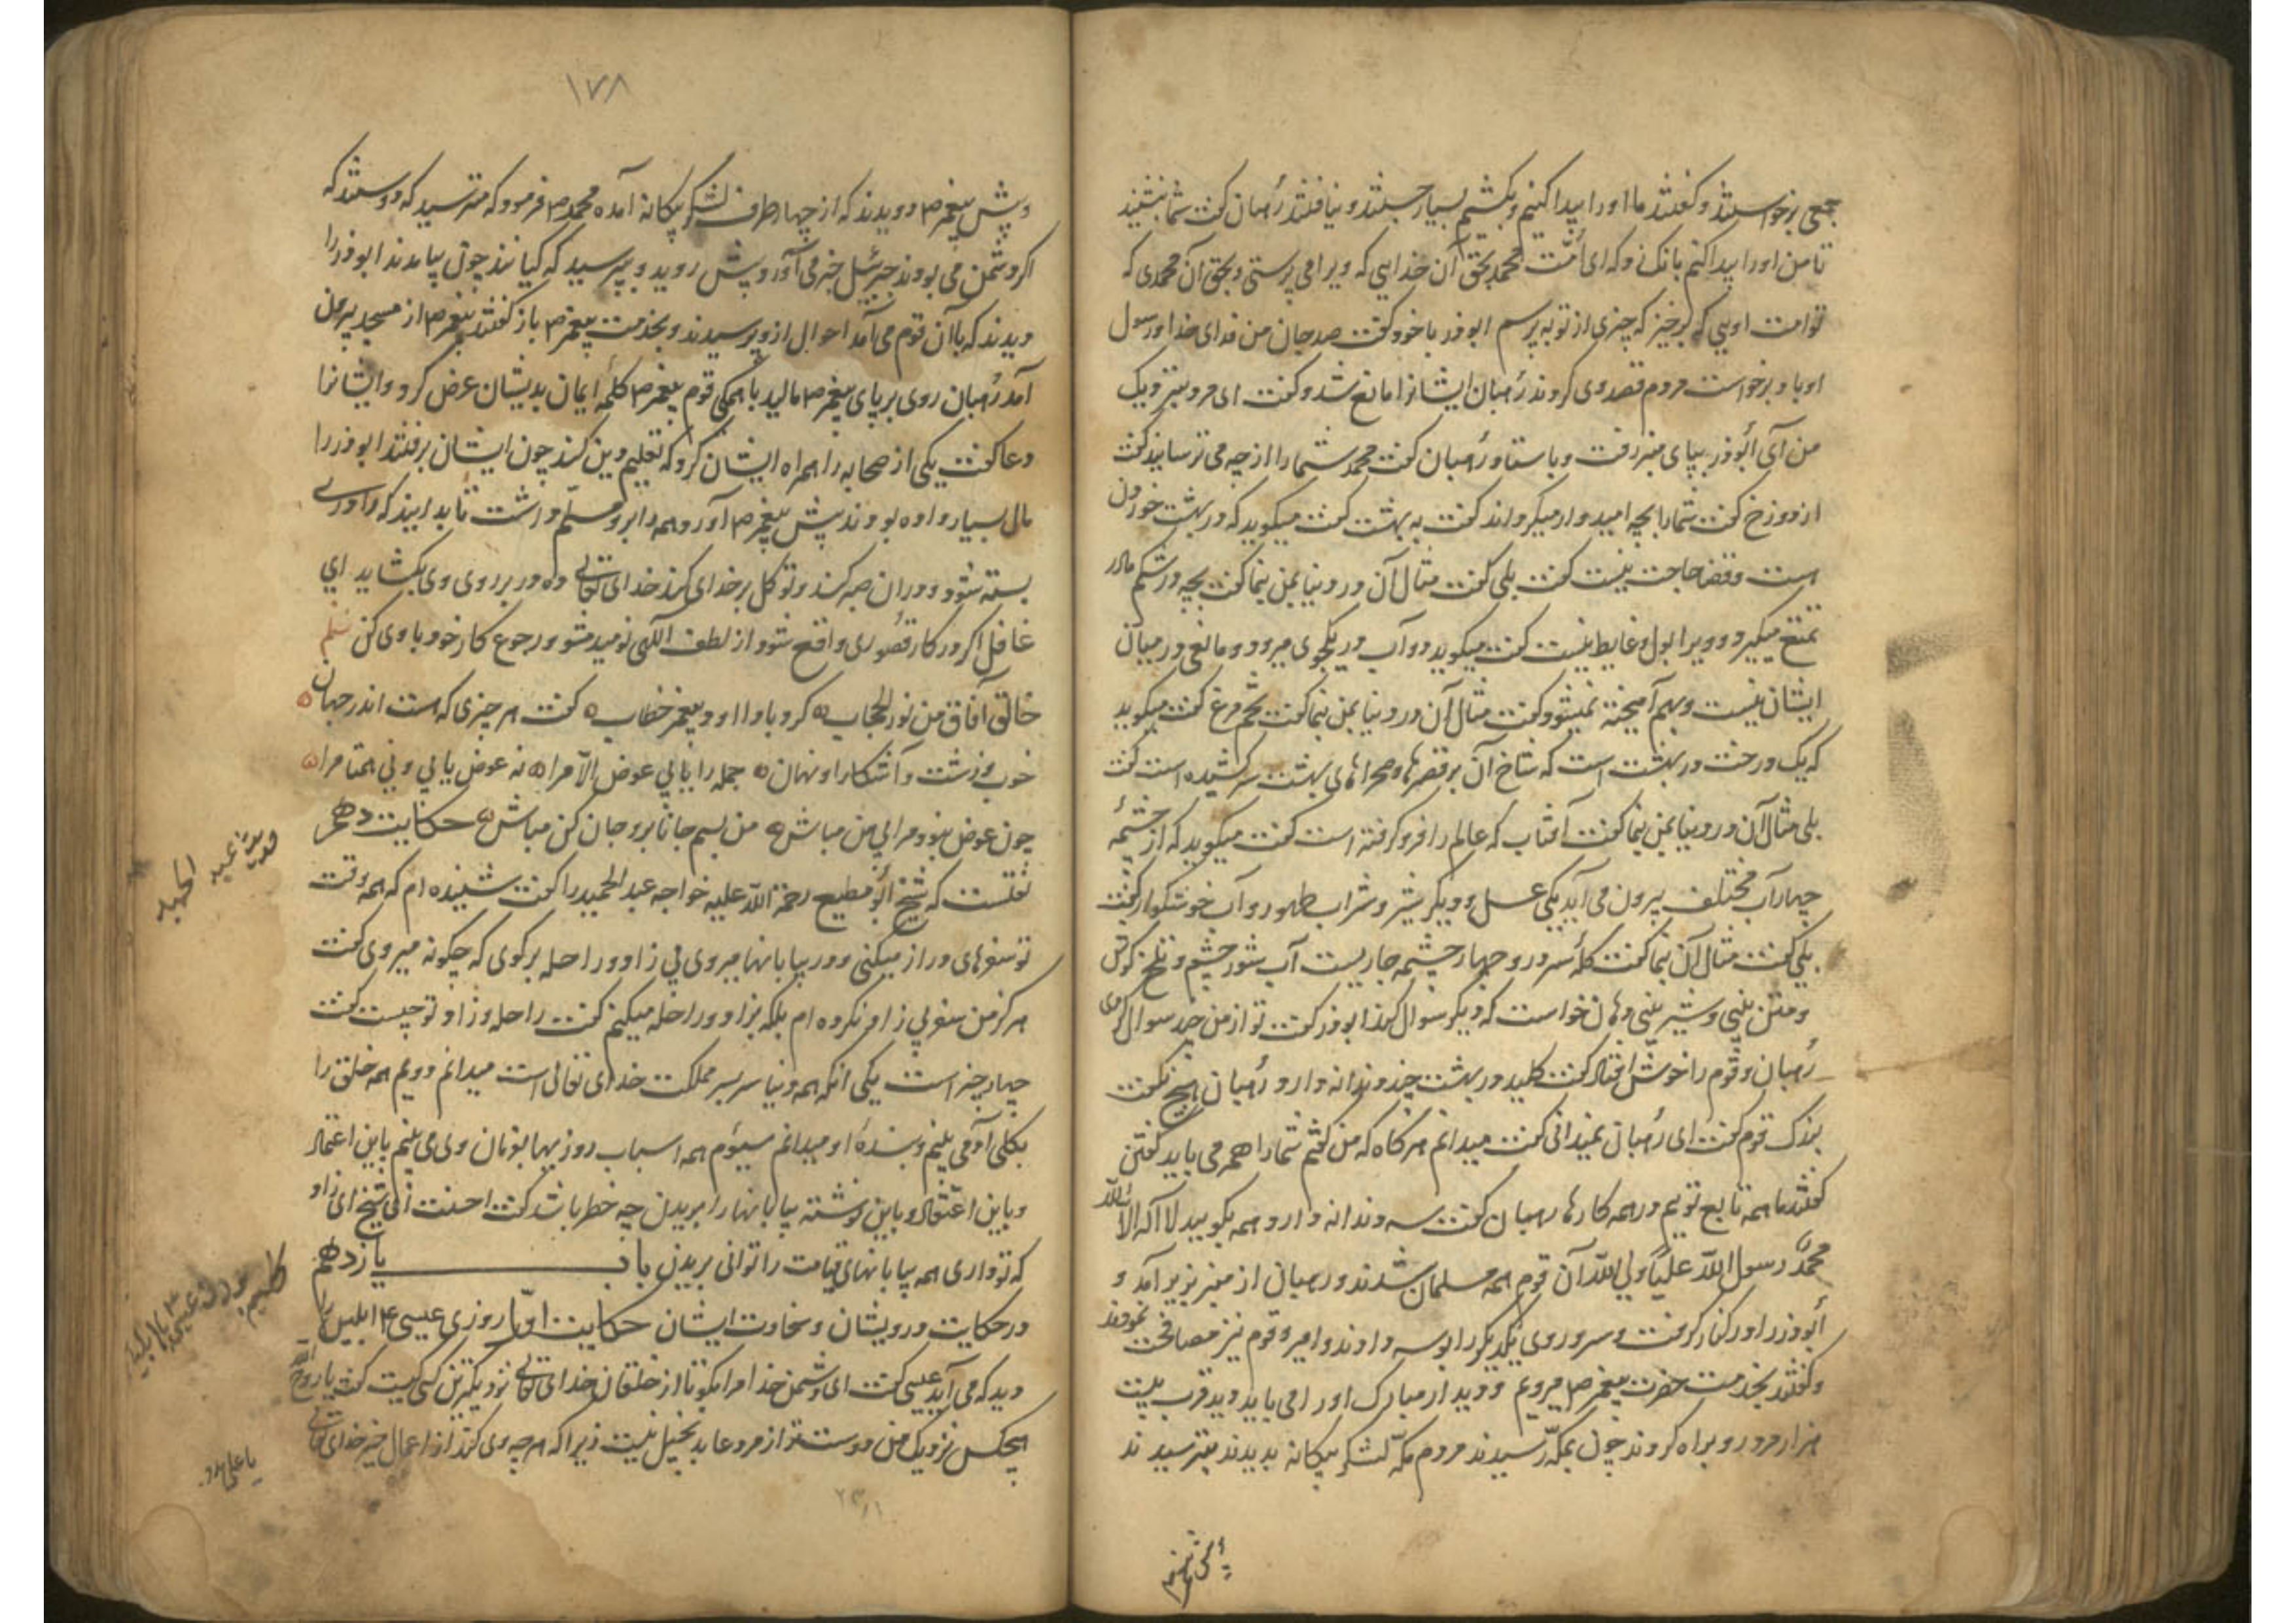 جمعی برخواستند و گفتند ما او را پیدا کنیم و بکشیم بسیار جستند و نیافتند رُهبان گفت شما بنشینید
تا من او را پیدا کنم بانک زد که ای اُمّت محمد بحق آن خدایی که ویرا می پرستی و بحق آن محمدی که
تو امت اویی که برخیز که چیزی از تو به پرسم ابوذر با خود گفت صد جان من فدای خدا و رسول
او باد برخواست مردم قصد وی کردند رُهبان ایشانرا مانع شد و گفت ای مرد بنزدیک
من آی اُبوذر بپای منبر رفت و باستاد رُهبان گفت محمد شما را از چه می ترساند گفت
از دوزخ گفت شما را بچه امیدوار میکرداند گفت به بهشت گفت میکوید که در بهشت خوردن
است و قضا حاجت نیست گفت بلی گفت مثال آن در دنیا بمن نما گفت بچه در شکم مادر
تمتع میکیرد و ویرا بول و غایط نیست گفت میکوید دو آب در یکجوی میرود و مانعی در میان
ایشان نیست و بهم آمیخته نمیشود گفت مثال آن در دنیا بمن نما گفت تخم مرغ گفت میکوید
که یک درخت در بهشت است که شاخ آن بر قصرها و صحراهای بهشت سر کشیده است گفت
بلی مثال آن در دنیا بمن نما گفت آفتاب که عالم را فرو گرفته است گفت میکوید که از چشمهٔ
چهار آب مختلف بیرون می آید یکی عسل و دیگر شیر و شراب طهور و آب خوشکوار گفت
بلی گفت مثال آن نما گفت کلهٔ سر در و چهار چشمه جاریست آب شور چشم و تلخ گوش
و منتن بینی و شیرینی دهان خواست که دیگر سوال کند ابوذر گفت تو از من چند سوال کردی
رُهبان و قوم را خوش افتاد گفت کلید در بهشت چند دندانه دارد رُهبان هیچ نگفت
بزرک قوم گفت ای رُهبان نمیدانی گفت میدانم هرگاه که من گفتم شما را هم می باید گفتن
گفتند ما همه تابع توییم در همه کارها رهبان گفت سه دندانه دارد همه بکویید لا اله الا الله
محمدٌ رسول الله علیًّا ولی الله آن قوم همه مسلمان شدند و رهبان از منبر بزیر آمد و
اُبوذر را در کنار گرفت و سر و روی یکدیگر را بوسه دادند و امیر و قوم نیز مصافحت نمودند
و گفتند بخدمت حضرت پیغمبر ص میرویم و دیدار مبارک او را می باید دید قرب بیست
هزار مرد رو براه کردند چون بمکه رسیدند مردم مکه لشکر بیکانه بدیدند بترسیدند
۱۷۸
و پیش پیغمبر ص دویدند که از چهار طرف لشکر بیکانه آمده محمد ص فرمود که مترسید که دوستند که
اگر دشمن می بودند جبرئیل خبر می آورد پیش روید و بپرسید که کیانند چون بیامدند ابوذر را
دیدند که با آن قوم می آمد احوال ازو پرسیدند و بخدمت پیغمبر ص باز گفتند پیغمبر ص از مسجد بیرون
آمد رُهبان روی بر پای پیغمبر ص مالید با همکی قوم پیغمبر ص کلمهٔ ایمان بدیشان عرض کرد و ایشانرا
دعا گفت یکی از صحابه را همراه ایشان کرد که تعلیم دین کند چون ایشان برفتند ابوذر را
مال بسیار داده بودند پیش پیغمبر ص آورد همه را برو مسلّم داشت تا بدانید که را دری
بسته شود و در ان صبر کند و توکل بر خدای کند خدای تعالی ده در بر روی وی بکشاید ای
غافل اگر در کار قصُوری واقع شود از لطف الٓهی نومید مشو و رجوع کار خود با وی کن نظم
خالق آفاق من نور الحجاب کرد با داود پیغمبر خطاب گفت هر چیزی که هست اندر جهان
خوب و زشت و آشکارا و نهان جمله را یابی عوض الّا مرا نه عوض یابی و نی همتا مرا
چون عوض نبود مرا بی من مباش من بسم جانا برو جان کن مباش حکایت دهم
نقلست که شیخ اُبو مطیع رحمة الله علیه خواجه عبد الحمید را گفت شنیده ام که همه وقت
تو سفرهای دراز میکنی و در بیابانها میروی بی زاد و راحله برکوی که چکونه میروی گفت
هرگز من سفر بی زاد نکرده ام بلکه بزاد و راحله میکنم گفت راحله و زاد تو چیست گفت
چهار چیز است یکی انکه همه دنیا سر بسر مملکت خدای تعالی است میدانم دویم همه خلق را
بکلی آدمی بینم و بندهٔ او میدانم سیوم همه اسباب و روزیها بفرمان وی می بینم باین اعتماد
و باین اعتقاد و باین توشه بیابانها را بریدن چه خطر باشد گفت احسنت ای شیخ ای زاد
که تو داری همه بیابانهای قیامت را توانی بریدن باب یازدهم
در حکایت درویشان و سخاوت ایشان حکایت اوّل روزی عیسی ع ابلیس را
دید که می آید عیسی گفت ای دشمن خدا مرا بکو تا از خلقان خدای تعالی نزدیکترین کسی کیست گفت یا روح الله
هیچکس نزدیک من دوست تر از مرد عابد بخیل نیست زیرا که هر چه وی کند از اعمال خیر خدای تعالی
عبد الحمید
یا علی مدد